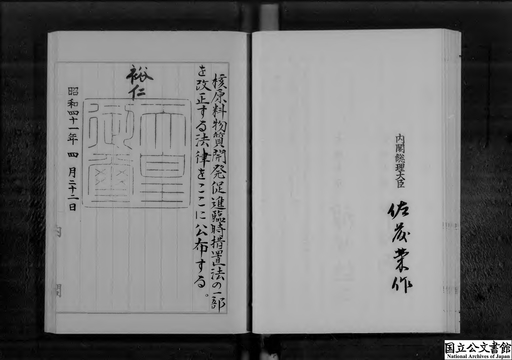 核原料物質開発促進臨時措置法の一部
を改正する法律をここに公布する。
裕仁
天皇
御璽
昭和四十一年四月二十二日
内閣総理大臣
佐藤榮作
国立公文書館
National Archives of Japan